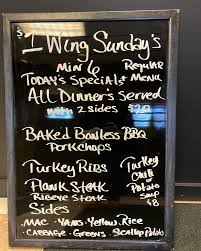 $1 Wing Sunday's
Min 6 Regular
Today's Specials Menu
All Dinner's Served
with 2 Sides $20
Baked Bonless BBQ
Porkchops
Turkey Ribs
Flank Steak
Ribeye Steak
Sides
Mac - Yams - Yellow Rice
Cabbage - Greens - Scallop Potato
Turkey
Chili
or
Potato
Soup
$8